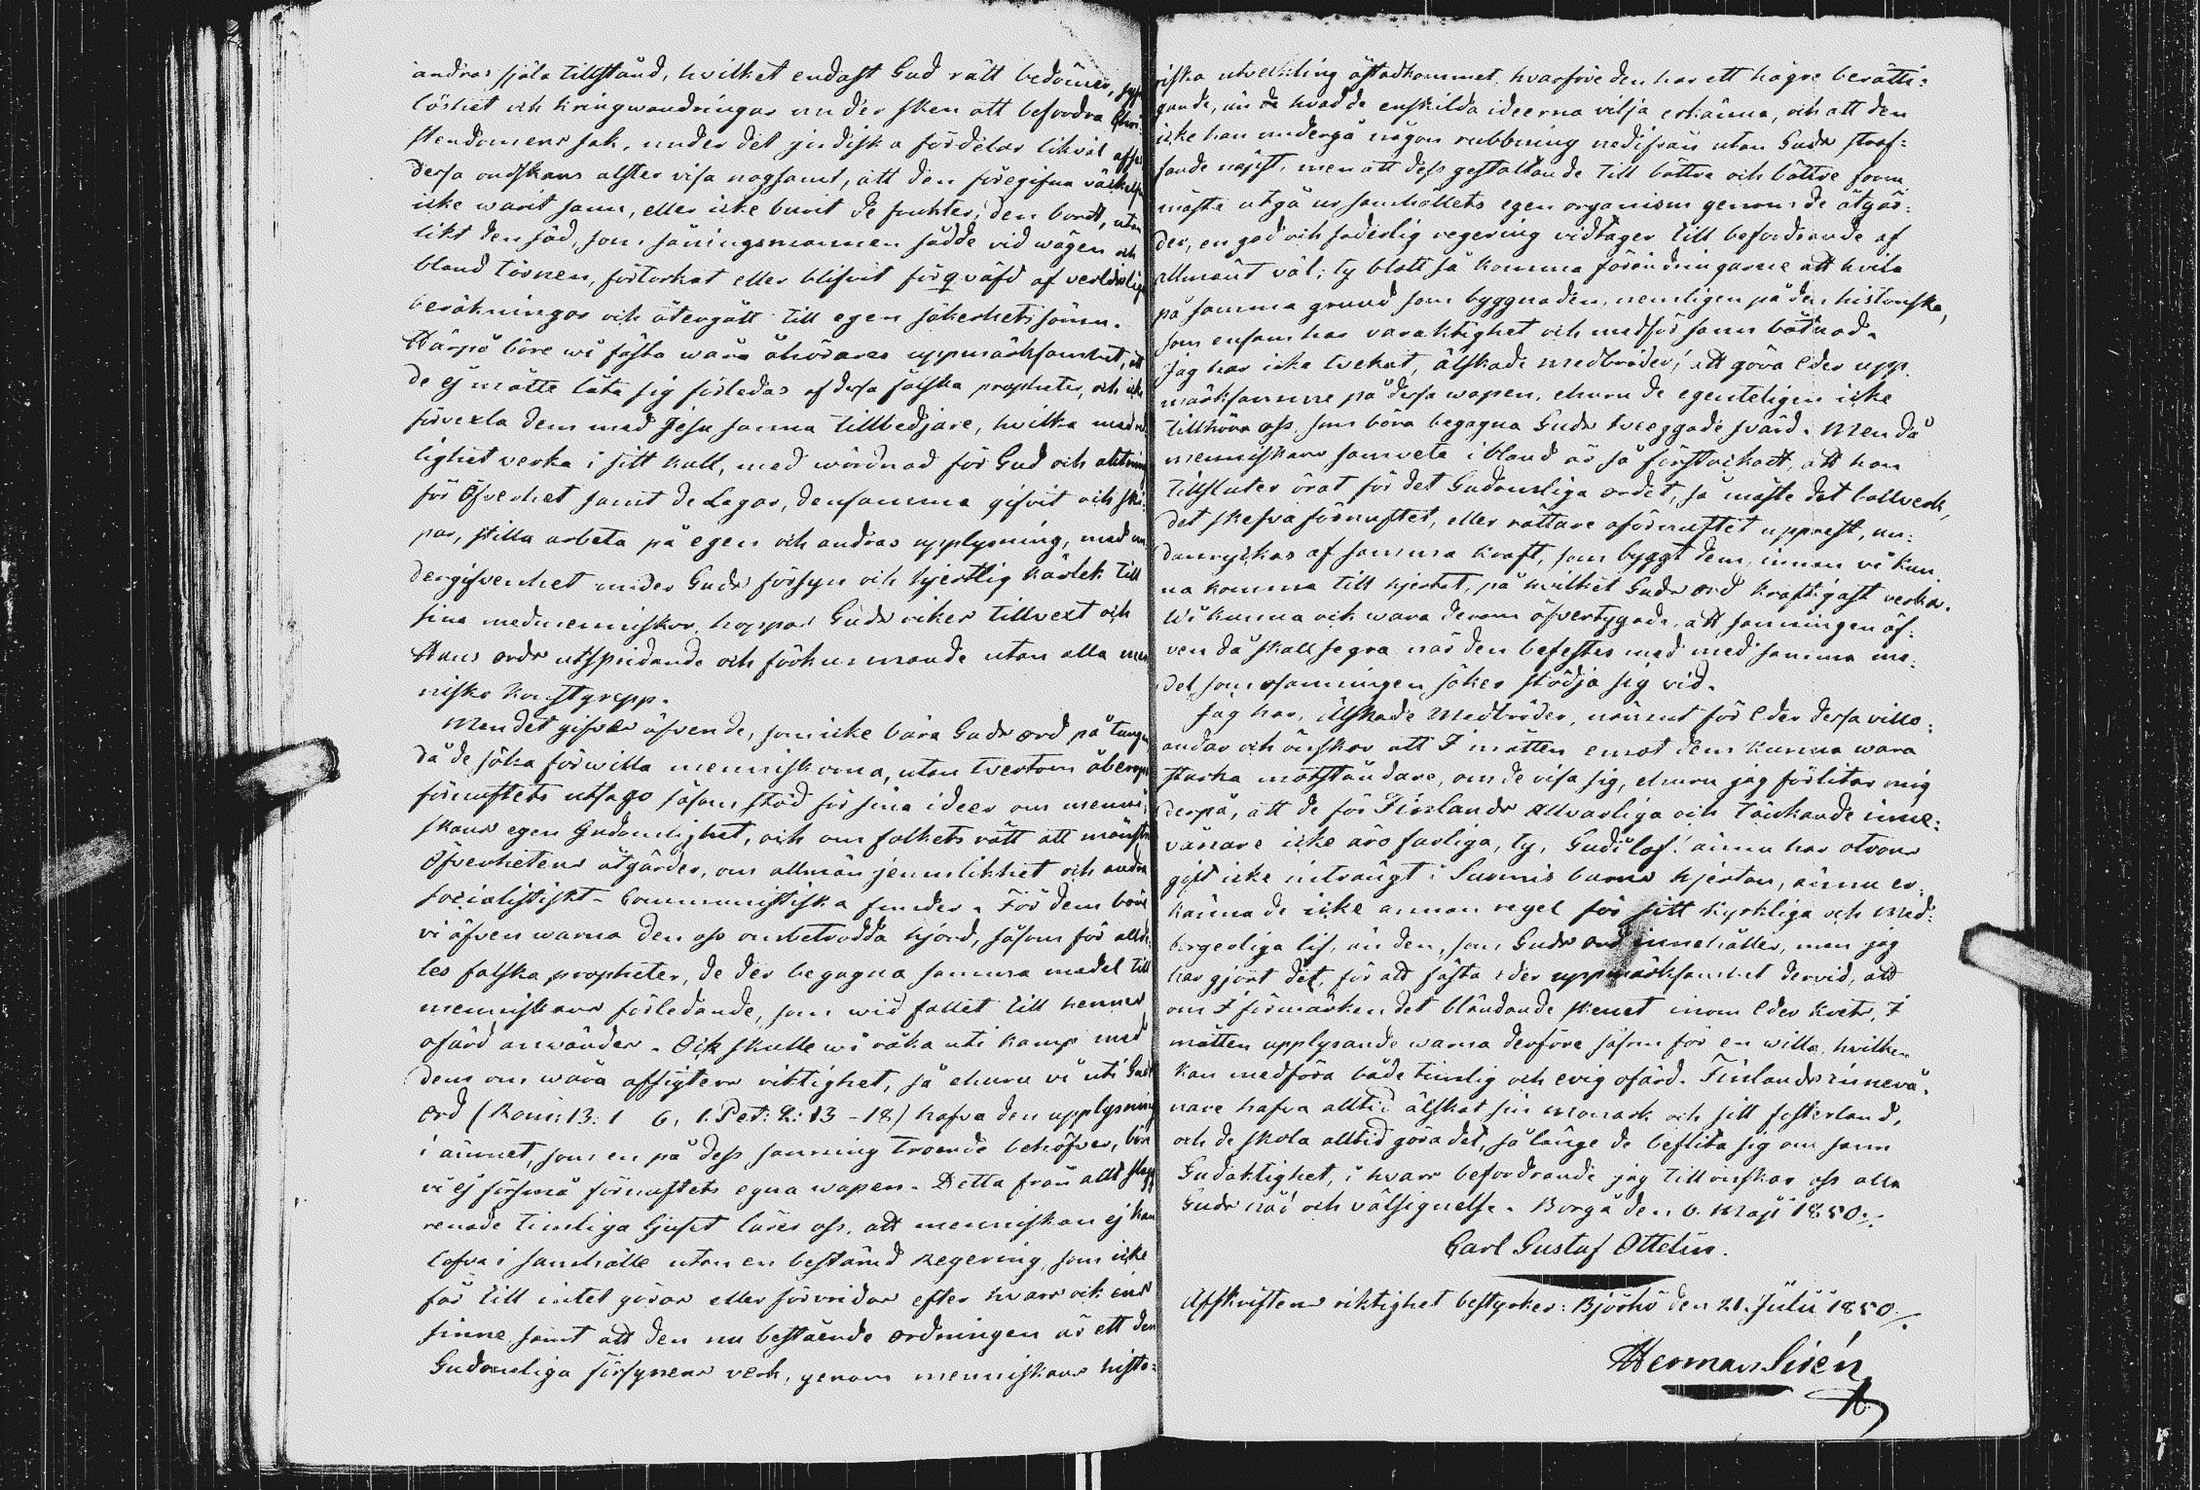 andras själs tillstånd, hvilket endast Gud rätt bedömer, sys-
löshet och kringwandringar under sken att befordra Chri
stendomens sak, under det judiska fördelar likväl
dessa ondskans alster visa nogsamt, att den föregifna väckelsen
icke warit sann, eller icke burit de frukter, den bordt, utan
likt den säd, som såningsmannen sådde vid wägen och
bland törnen, förtorkat eller blifvit förqväfd af verldsliga
beräkningar och återgått till egen säkerhets sömn.
Härpå böre wi fästa wåra åhörares uppmärksamhet, att
de ej måtte låta sig förledas af dessa falska propheter, och icke
förvexla dem med Jesu sanna tillbedjare, hvilka med red
lighet verka i sitt kall, med wördnad för Gud och aktning
för Öfverhet samt de Lagar, densamma gifvit och ska
par, stilla arbeta på egen och andras upplysning, med un
dergifvenhet under Guds försyn och hjertlig kärlek till
sina medmenniskor, hoppas Guds rikes tillvext och
Hans ords utspridande och förkunnande utan alla men
niske konstgrepp.
Men det gifves äfven de, som icke bära Guds ord på tungan
då de söka förwilla menniskorna, utan twertom åberopa
förnuftets utsago såsom stöd för sina ideer om menni
skans egen Gudomlighet, och om folkets rätt att mönstra
Öfverhetens åtgärder, om allmän jemnlikhet och andra
socialistiskt-Communistiska funder. För dem böre
vi äfven warna den oss ombetrodda hjord, såsom för allde
les falska propheter, de der begagna samma medel till
menniskans förledande, som wid fallet till hennes
ofärd användes. Och skulle wi råka uti kamp med
dem om wåra åsigters riktighet, så ehuru vi uti Guds
ord (Rom: 13: 1 6, 1. Pet: 2: 13 - 18) hafva den upplysning
i ämnet, som en på dess sanning troende behöfver, böre
vi ej försmå förnuftets egna wapen. Detta från allt slagg
renade timliga ljuset lärer oss, att menniskan ej kan
lefva i samhälle utan en bestämd Regering, som icke
får till intet göras eller förvridas efter hvars och ens
sinne, samt att den nu bestående ordningen är ett den
Gudomliga försynens verk, genom menniskans histo=
riska utveckling åstadkommet, hvarföre den har ett högre berätti=
gande, än de hvad de enskilda ideerna vilja erkänna, och att den
icke kan undergå någon rubbning nedifrån utan Guds straf=
fande näpst, men att dess gestaltande till bättre och bättre form
måste utgå ur samhällets egen organism genom de åtgär=
der, en god och faderlig regering vidtager till befordrande af
allmänt väl; ty blott så komma förändringarne att hvila
på samma grund som byggnaden, nemligen på den historiska,
som ensam har varaktighet och medför sann båtnad.
Jag har icke tvekat, älskade medbröder! att göra Eder upp
märksamme på dessa wapen, ehuru de egenteligen icke
tillhöra oss, som böra begagna Guds tveeggade svärd. Men då
menniskans samvete ibland är så förstockadt, att hon
tillsluter örat för det Gudomliga ordet, så måste det bollverk,
det skefva förnuftet, eller rättare oförnuftet upprest, un=
danryckas af samma kraft, som byggt dem, innan vi kun
na komma till hjertat, på hvilket Guds ord kraftigast verkar.
Wi kunna och wara derom öfvertygade, att sanningen äf=
ven då skall segra när den befästes med med samma me=
del, som osanningen söker stödja sig vid.
Jag har, älskade Medbröder, nämnt för Eder dessa villo=
andar och önskar att I måtten emot dem kunna wara
starka motståndare, om de visa sig, ehuru jag förlitar mig
derpå, att de för Finlands allvarliga och tänkande inne=
vånare icke äro farliga, ty, Gudi lof! ännu har otrons
gift icke inträngt i Suomis barns hjertan, ännu er=
känna de icke annan regel för sitt kyrkliga och Med=
borgerliga lif, än den, som Guds ord innehåller, men jag
har gjort det, för att fästa eder uppmärksamhet dervid, att
om I förmärken det bländande skenet inom Eder krets, I
måtten upplysande warna derföre såsom för en willa, hvilken
kan medföra både timlig och evig ofärd. Finlands innevå=
nare hafva alltid älskat sin Monark och sitt fosterland,
och de skola alltid göra det, så länge de beflita sig om sann
Gudaktighet, i hvars befordrande jag tillönskar oss alla
Guds nåd och välsignelse. Borgå den 6. Maji 1850./.
Carl Gustaf Ottelin.
Afskriftens riktighet bestyrker: Björkö den 21. Julii 1850./.
Herman Sirén